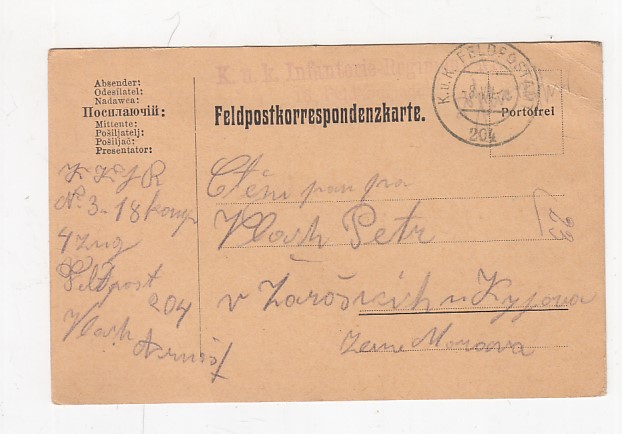 Absender:
Odesílatel:
Nadawca:
Посилаючий:
Mittente:
Pošiljatelj:
Pošiljač:
Presentator:
K. u. k. Infanterie-Regim
Feldpostkorrespondenzkarte.
K.u.K. FELDPOSTAMT
204
Portofrei
K K J R
No 3 - 18 komp
4 Zug
Feldpost
204
Vlach
Arnošt
Ctěný pan
Vlach Petr
23
v Žarošicích u Kyjova
Země Morava